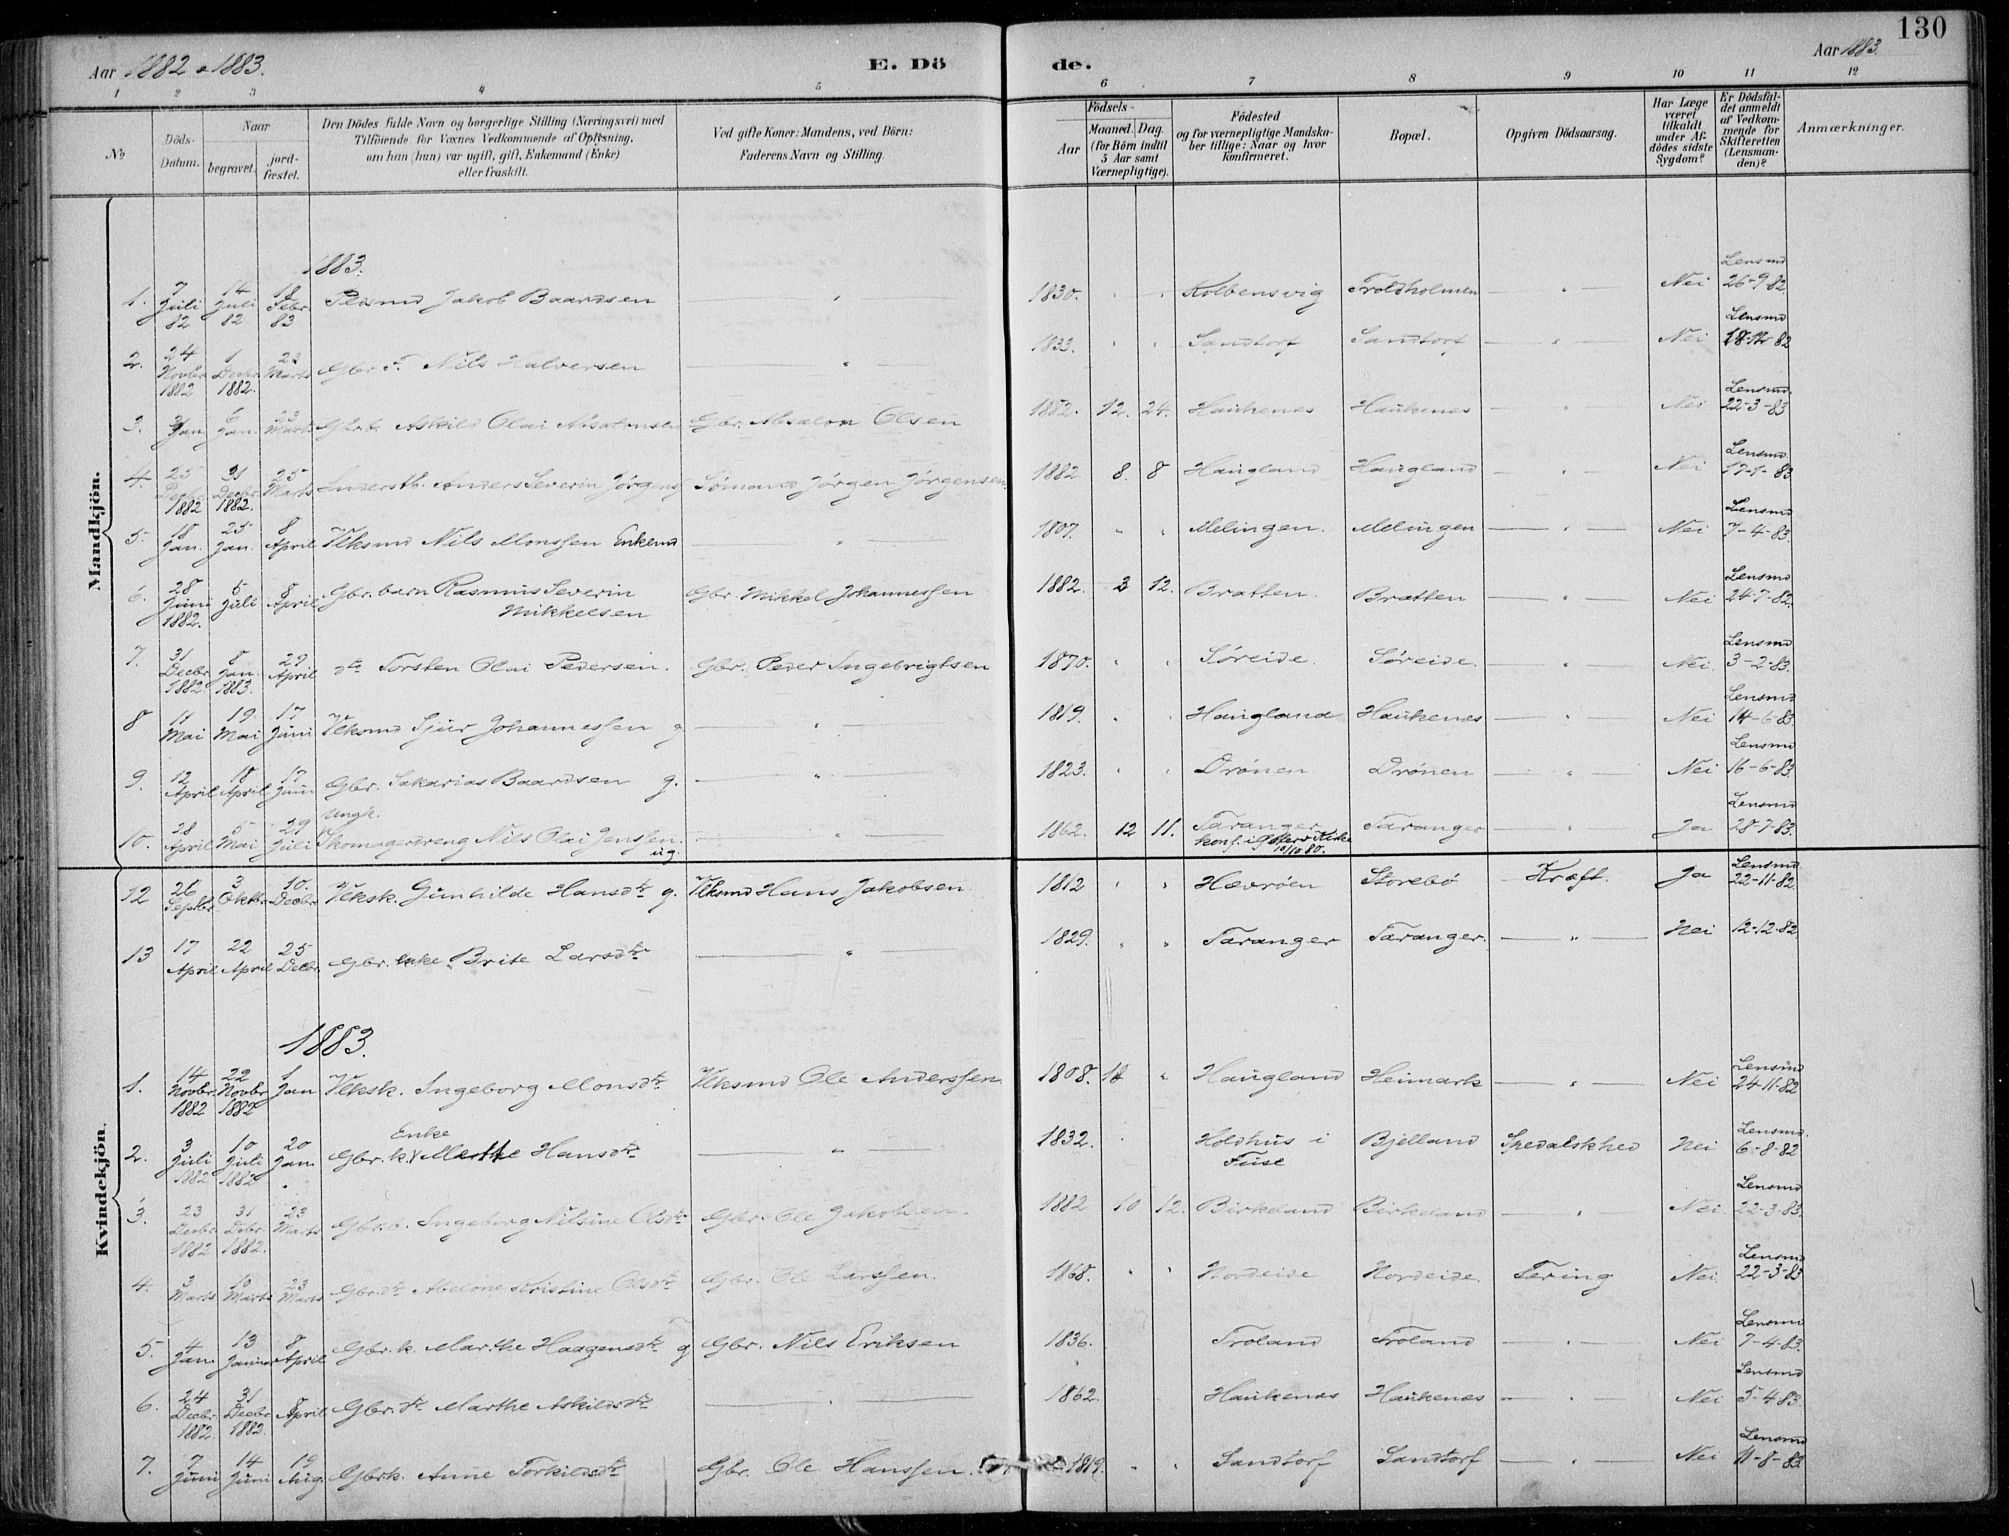 130
Aar 1882 & 1883.
E. Döde.
Aar 1883.
1 2 3 4 5 6 7 8 9 10 11 12
No
Döds-Datum.
Naar
begravet.
jord-fæstet.
Den Dödes fulde Navn og borgerlige Stilling (Næringsvei) med
Tilföiende for Voxnes Vedkommende af Oplysning,
om han (hun) var ugift, gift, Enkemand (Enke)
eller fraskilt.
Ved gifte Koner: Mandens, ved Börn:
Faderens Navn og Stilling.
Födsels-
Aar
Maaned. Dag.
(for Börn indtil
5 Aar samt
Værnepligtige).
Födested
og for værnepligtige Mandska-
ber tillige: Naar og hvor
konfirmeret.
Bopæl.
Opgiven Dödsaarsag.
Har Læge
været
tilkaldt
under Af-
dödes sidste
Sygdom?
Er Dödsfal-
det anmeldt
af Vedkom-
mende for
Skifteretten
(Lensman-
den)?
Anmærkninger.
Mandkjön.
1883.
1. 7 Juli 82 14 Juli 82 18 Febr. 83 Jakob Baardsen " 1830. " " Kolbensvig Troldholmen " Nei Lensmd 26-9-82
2. 24 Novbr 1882 1 Decbr 1882. 23 Marts Gbr. Nils Halversen " 1833. " " Sandtorf Sandtorf " Nei Lensmd 82
3. Jan. 6 Jan. 23 Marts Gbr.b. Askild Olai Absalonsen Gbr. Absalon Olsen 1882. 12. 24. Haukenes Haukenes " Nei Lensmd. 22-3-83
4. 25 Decbr 1882 31 Decbr 1882. 25 Marts Anders Severin Jørgens Sømand Jørgen Jørgensen. 1882 8. 8 Haugland Haugland " Nei Lensmd 17-1-83
5. 18 Jan. 25 Jan. 8 April Vlksmd Nils Monssen Enkemd " 1807. " " Melingen. Melingen " Nei Lensmd 7-4-83.
6. 28 Juni 1882. 5 Juli 8 April Gbr. barn Rasmus Severin Mikkelsen Gbr Mikkel Johannessen 1882. 3 12. Bratten. Bratten " Nei Lensmd 24-7-82.
7. 31 Decbr 1882 8 Jan. 1883. 29 April dto Torsten Olai Pedersen. Gbr. Peder Ingebrigtsen 1870. " " Søreide. Søreide. " Nei. Lensmd 3-2-83.
8 11 Mai 19 Mai 17 Juni Vlksmd Sjur Johannessen g " 1819. " " Haugland Haukenes " Nei Lensmd 14-6-83
9. 12 April 18 April 17 Juni Gbr. Sakarias Baardsen g. " 1823. " " Drönen Drönen " Nei Lensmd 16-6-83
10. 28 April 5 Mai 29 Juli Ungk. Skomagerdreng Nils Olai Jenssen. ug. " 1862. 12 11. Taranger konf. i 10/10 80. Taranger " Ja Lensmd 28-7-83.
Kvindekjön.
12 26 Septbr 3 Oktbr. 10 Decbr Vlksk. Gunhilde Hansdtr g. Vlksmd Hans Jakobsen. 1812 " " Hevröen Storebö Kræft. Ja Lensmd 22-11-82.
13 17 April 22 April 25 Decbr. Gbr. enke Brite Larsdtr " 1829. " " Taranger Taranger. " Nei 12-12-82
1883.
1. 14 Novbr. 1882 22 Novbr 1882 1 Jan Vlksk. Ingeborg Monsdtr Vlksmd Ole Anderssen. 1808. " Haugland Heimark " Nei Lensmd 24-11-82
2. 3 Juli 1882 10 Juli 1882 20 Jan. Gbr.k. Enke Marthe Hansdtr " 1832. " Holdhus i Fuse Bjelland Spedalskhed Nei Lensmd. 6-8-82
3. 23 Decbr 1882 31 Debr. 1882. 23 Marts Gbr.b. Ingeborg Nilsine Olsdtr Gbr. Ole Jakobsen. 1882 10 12. Birkeland Birkeland " Nei. Lensmd 22-3-83.
4. 3 Marts 10 Marts 23 Marts Gbr.dtr Abelone Kristine Olsdtr Gbr. Ole Larssen. 1868. " " Nordeide Nordeide. Tering Nei. Lensmd 22-3-83
5. 4 Jan. 13 Januar 8 April Gbr.k. Marthe Haagensdtr g Gbr. Nils Eriksen 1836. Troland Troland " Nei Lensmd 7-4-83.
6. 24 Decbr. 1882. 31 Decbr 1882. 8 April Gbr. dtr. Marthe Askildsdtr " 1862. Haukenes Haukenes " Nei Lensmd 5-4-83.
7. 7 Juni 14 Juni 19 Aug. Gbrk. Anne Torkildsdtr Gbr. Ole Hanssen. 1819. " " Sandtorf Sandtorf " Nei Lensmd 11-8-83.